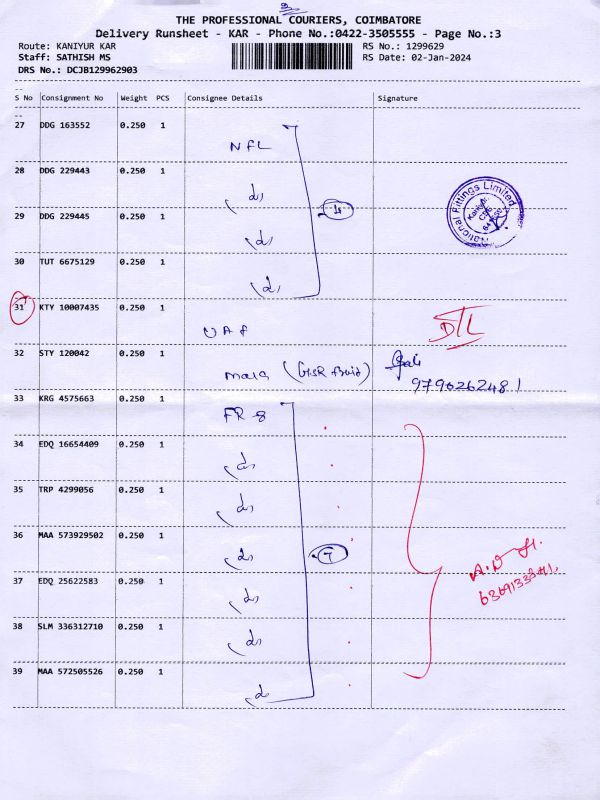 THE PROFESSIONAL COURIERS, COIMBATORE
Delivery Runsheet - KAR - Phone No.:0422-3505555 - Page No.:3
Route: KANIYUR KAR
RS No.: 1299629
Staff: SATHISH MS
RS Date: 02-Jan-2024
DRS No.: DCJB129962903
S No Consignment No Weight PCS Consignee Details Signature
27 DDG 163552 0.250 1 NFL
28 DDG 229443 0.250 1
4
National Fittings Limited
Kaniyur
29 DDG 229445 0.250 1
30 TUT 6675129 0.250 1
31 KTY 10007435 0.250 1 UAF DTL
32 STY 120042 0.250 1 Mala
9790262481
33 KRG 4575663 0.250 1 FR-8
34 EDQ 16654409 0.250 1
35 TRP 4299056 0.250 1
36 MAA 573929502 0.250 1
7
37 EDQ 25622583 0.250 1
38 SLM 336312710 0.250 1
39 MAA 572505526 0.250 1